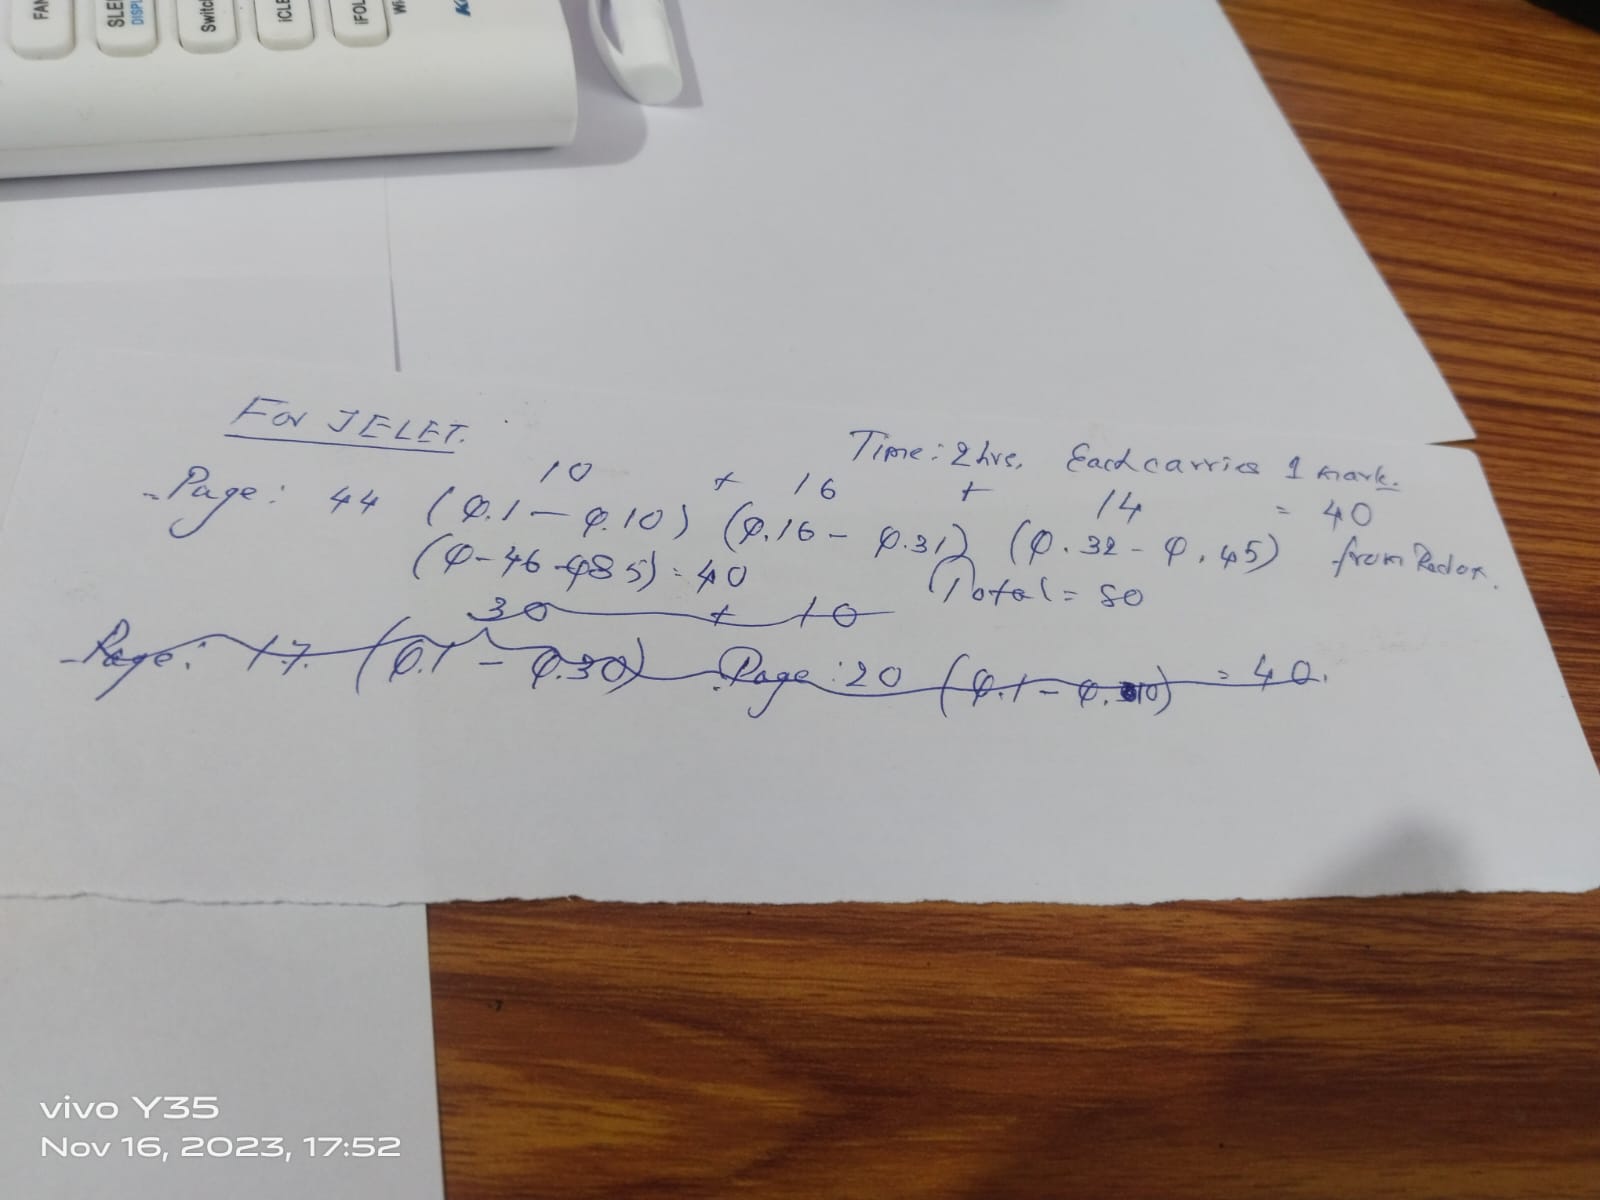 FAN
SLE
DISPL
Switch
iCLE
iFOL
For JELET.
Time: 2 hrs. Each carries 1 mark.
10 + 16 + 14 = 40
Page: 44 (Q.1 – Q.10) (Q.16 – Q.31) (Q.32 – Q.45) from Redox.
(Q-46-Q85) = 40 Total = 80
30 + 10
Page: 17. (Q.1 – Q.30) Page: 20 (Q.1 – Q.10) = 40.
vivo Y35
Nov 16, 2023, 17:52